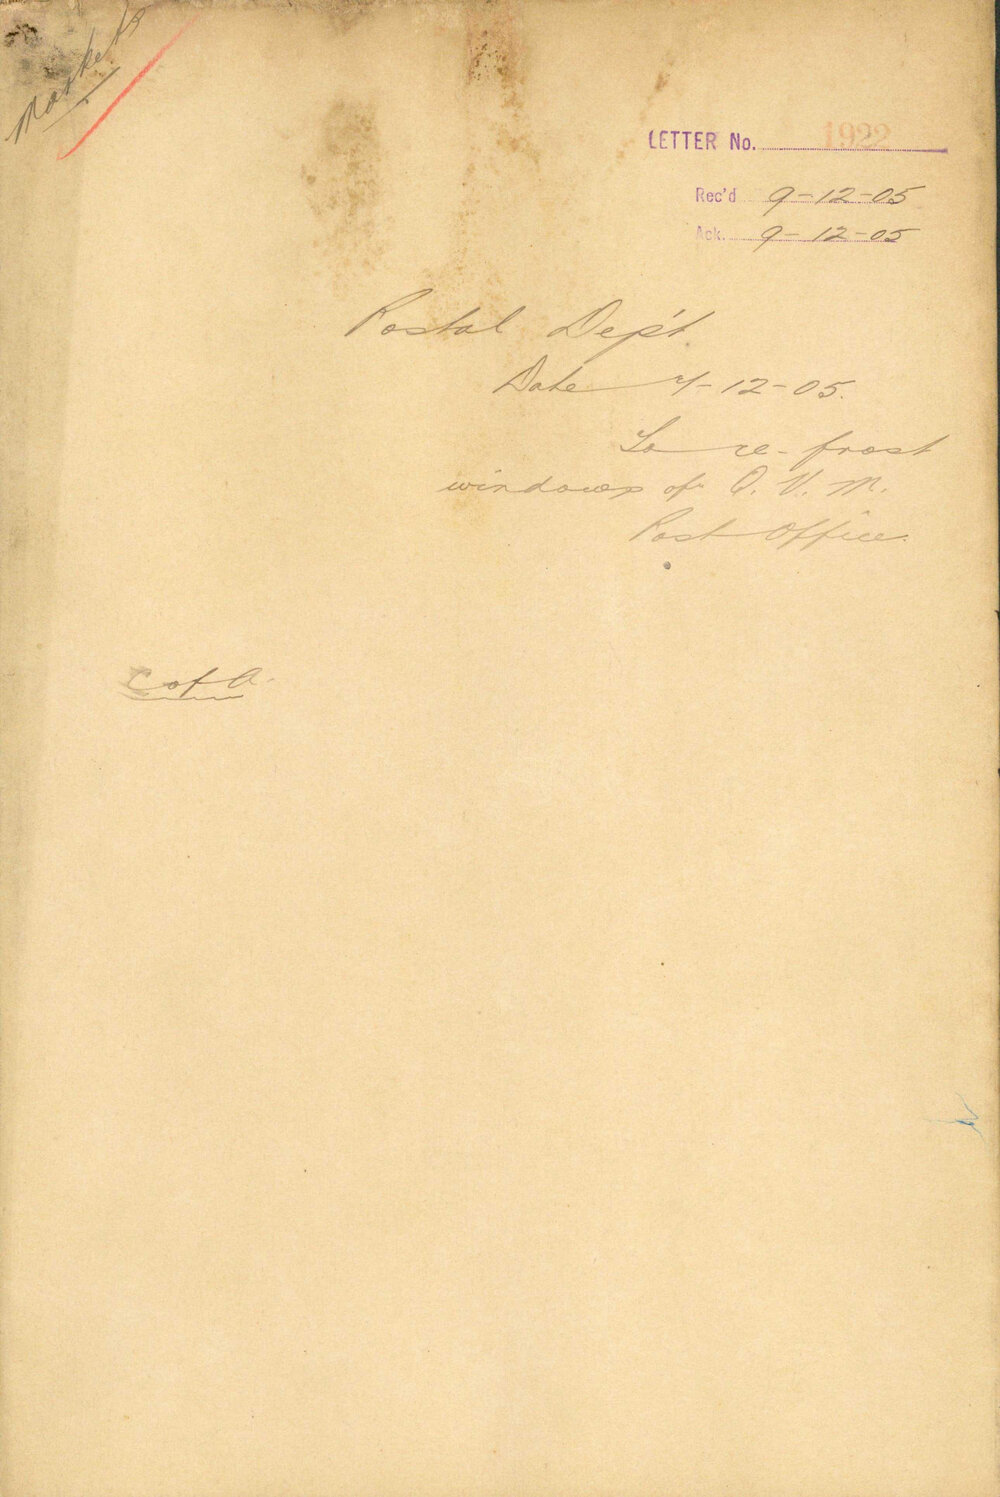 Markets
LETTER No. 1922
Rec'd 9-12-05
Ack. 9-12-05
Postal Dep't.
Date 7-12-05.
To re-frost
windows of Q. V. M.
Post Office.
C of A.